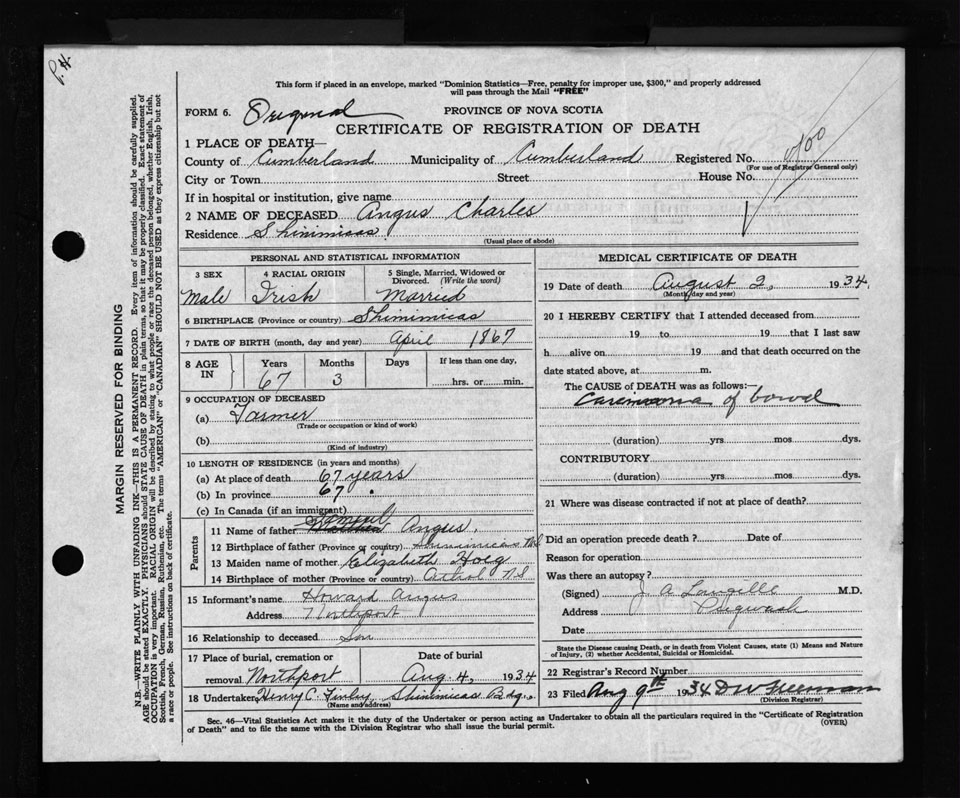 P.H.
This form if placed in an envelope, marked "Dominion Statistics—Free, penalty for improper use, $300," and properly addressed
will pass through the Mail "FREE"
FORM 6. Original PROVINCE OF NOVA SCOTIA
CERTIFICATE OF REGISTRATION OF DEATH
1 PLACE OF DEATH—
County of Cumberland Municipality of Cumberland Registered No.
(For use of Registrar General only)
City or Town Street House No.
If in hospital or institution, give name
2 NAME OF DECEASED Angus Charles
Residence Shinimicas
(Usual place of abode)
PERSONAL AND STATISTICAL INFORMATION
3 SEX 4 RACIAL ORIGIN 5 Single, Married, Widowed or
Divorced. (Write the word)
Male Irish Married
6 BIRTHPLACE (Province or country) Shinimicas
7 DATE OF BIRTH (month, day and year) April 1867
8 AGE IN Years Months Days If less than one day,
67 3 hrs. or min.
9 OCCUPATION OF DECEASED
(a) Farmer
(Trade or occupation or kind of work)
(b)
(Kind of industry)
10 LENGTH OF RESIDENCE (in years and months)
(a) At place of death 67 years
(b) In province 67 "
(c) In Canada (if an immigrant)
Parents
11 Name of father Angus,
12 Birthplace of father (Province or country) Shinimicas NS
13 Maiden name of mother Elizabeth Hoeg
14 Birthplace of mother (Province or country) NS
15 Informant's name Howard Angus
Address Northport
16 Relationship to deceased Son
17 Place of burial, cremation or Date of burial
removal Northport Aug. 4, 1934
18 Undertaker Henry C. Finley, Shinimicas Bdg.
(Name and address)
MEDICAL CERTIFICATE OF DEATH
19 Date of death August 2, 1934.
(Month, day and year)
20 I HEREBY CERTIFY that I attended deceased from
19 to 19 that I last saw
h alive on 19 and that death occurred on the
date stated above, at m.
The CAUSE OF DEATH was as follows:—
Carcinoma of bowel
(duration) yrs. mos. dys.
CONTRIBUTORY
(duration) yrs. mos. dys.
21 Where was disease contracted if not at place of death?
Did an operation precede death? Date of
Reason for operation
Was there an autopsy?
(Signed) J. A. Langille M.D.
Address Pugwash
Date
State the Disease causing Death, or in death from Violent Causes, state (1) Means and Nature
of Injury, (2) whether Accidental, Suicidal or Homicidal.
22 Registrar's Record Number
23 Filed Aug 9th 1934
(Division Registrar)
Sec. 46—Vital Statistics Act makes it the duty of the Undertaker or person acting as Undertaker to obtain all the particulars required in the "Certificate of Registration
of Death" and to file the same with the Division Registrar who shall issue the burial permit.
(OVER)
MARGIN RESERVED FOR BINDING
N.B.—WRITE PLAINLY WITH UNFADING INK—THIS IS A PERMANENT RECORD. Every item of information should be carefully supplied.
AGE should be stated EXACTLY. PHYSICIANS should STATE CAUSE OF DEATH in plain terms, so that it may be properly classified. Exact statement of
OCCUPATION is very important. RACIAL ORIGIN will be described by stating to what people or race the deceased person belonged, whether English, Irish,
Scottish, French, German, Russian, Ruthenian, etc. The terms "AMERICAN" or "CANADIAN" SHOULD NOT BE USED as they express citizenship but not
a race or people. See instructions on back of certificate.